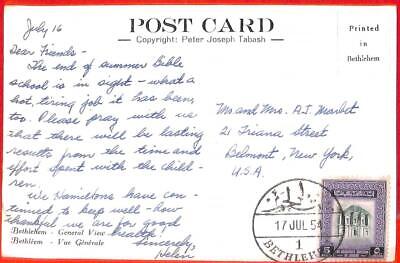 July 16
POST CARD
Copyright: Peter Joseph Tabash
Printed
in
Bethlehem
Dear Friends -
The end of summer Bible
school is in sight - what a
hot, tiring job it has been,
too. Please pray with us
that there will be lasting
results from the time and
effort spent with the child-
ren.
We Hamiltons have con-
tinued to keep well - how
thankful we are for good
health!
Bethlehem - General View
Bethléem - Vue Générale
Sincerely,
Helen
Mr. and Mrs. A.J. Market
21 Triana Street
Belmont, New York,
U.S.A.
17 JUL 54
1
BETHLEHEM
5